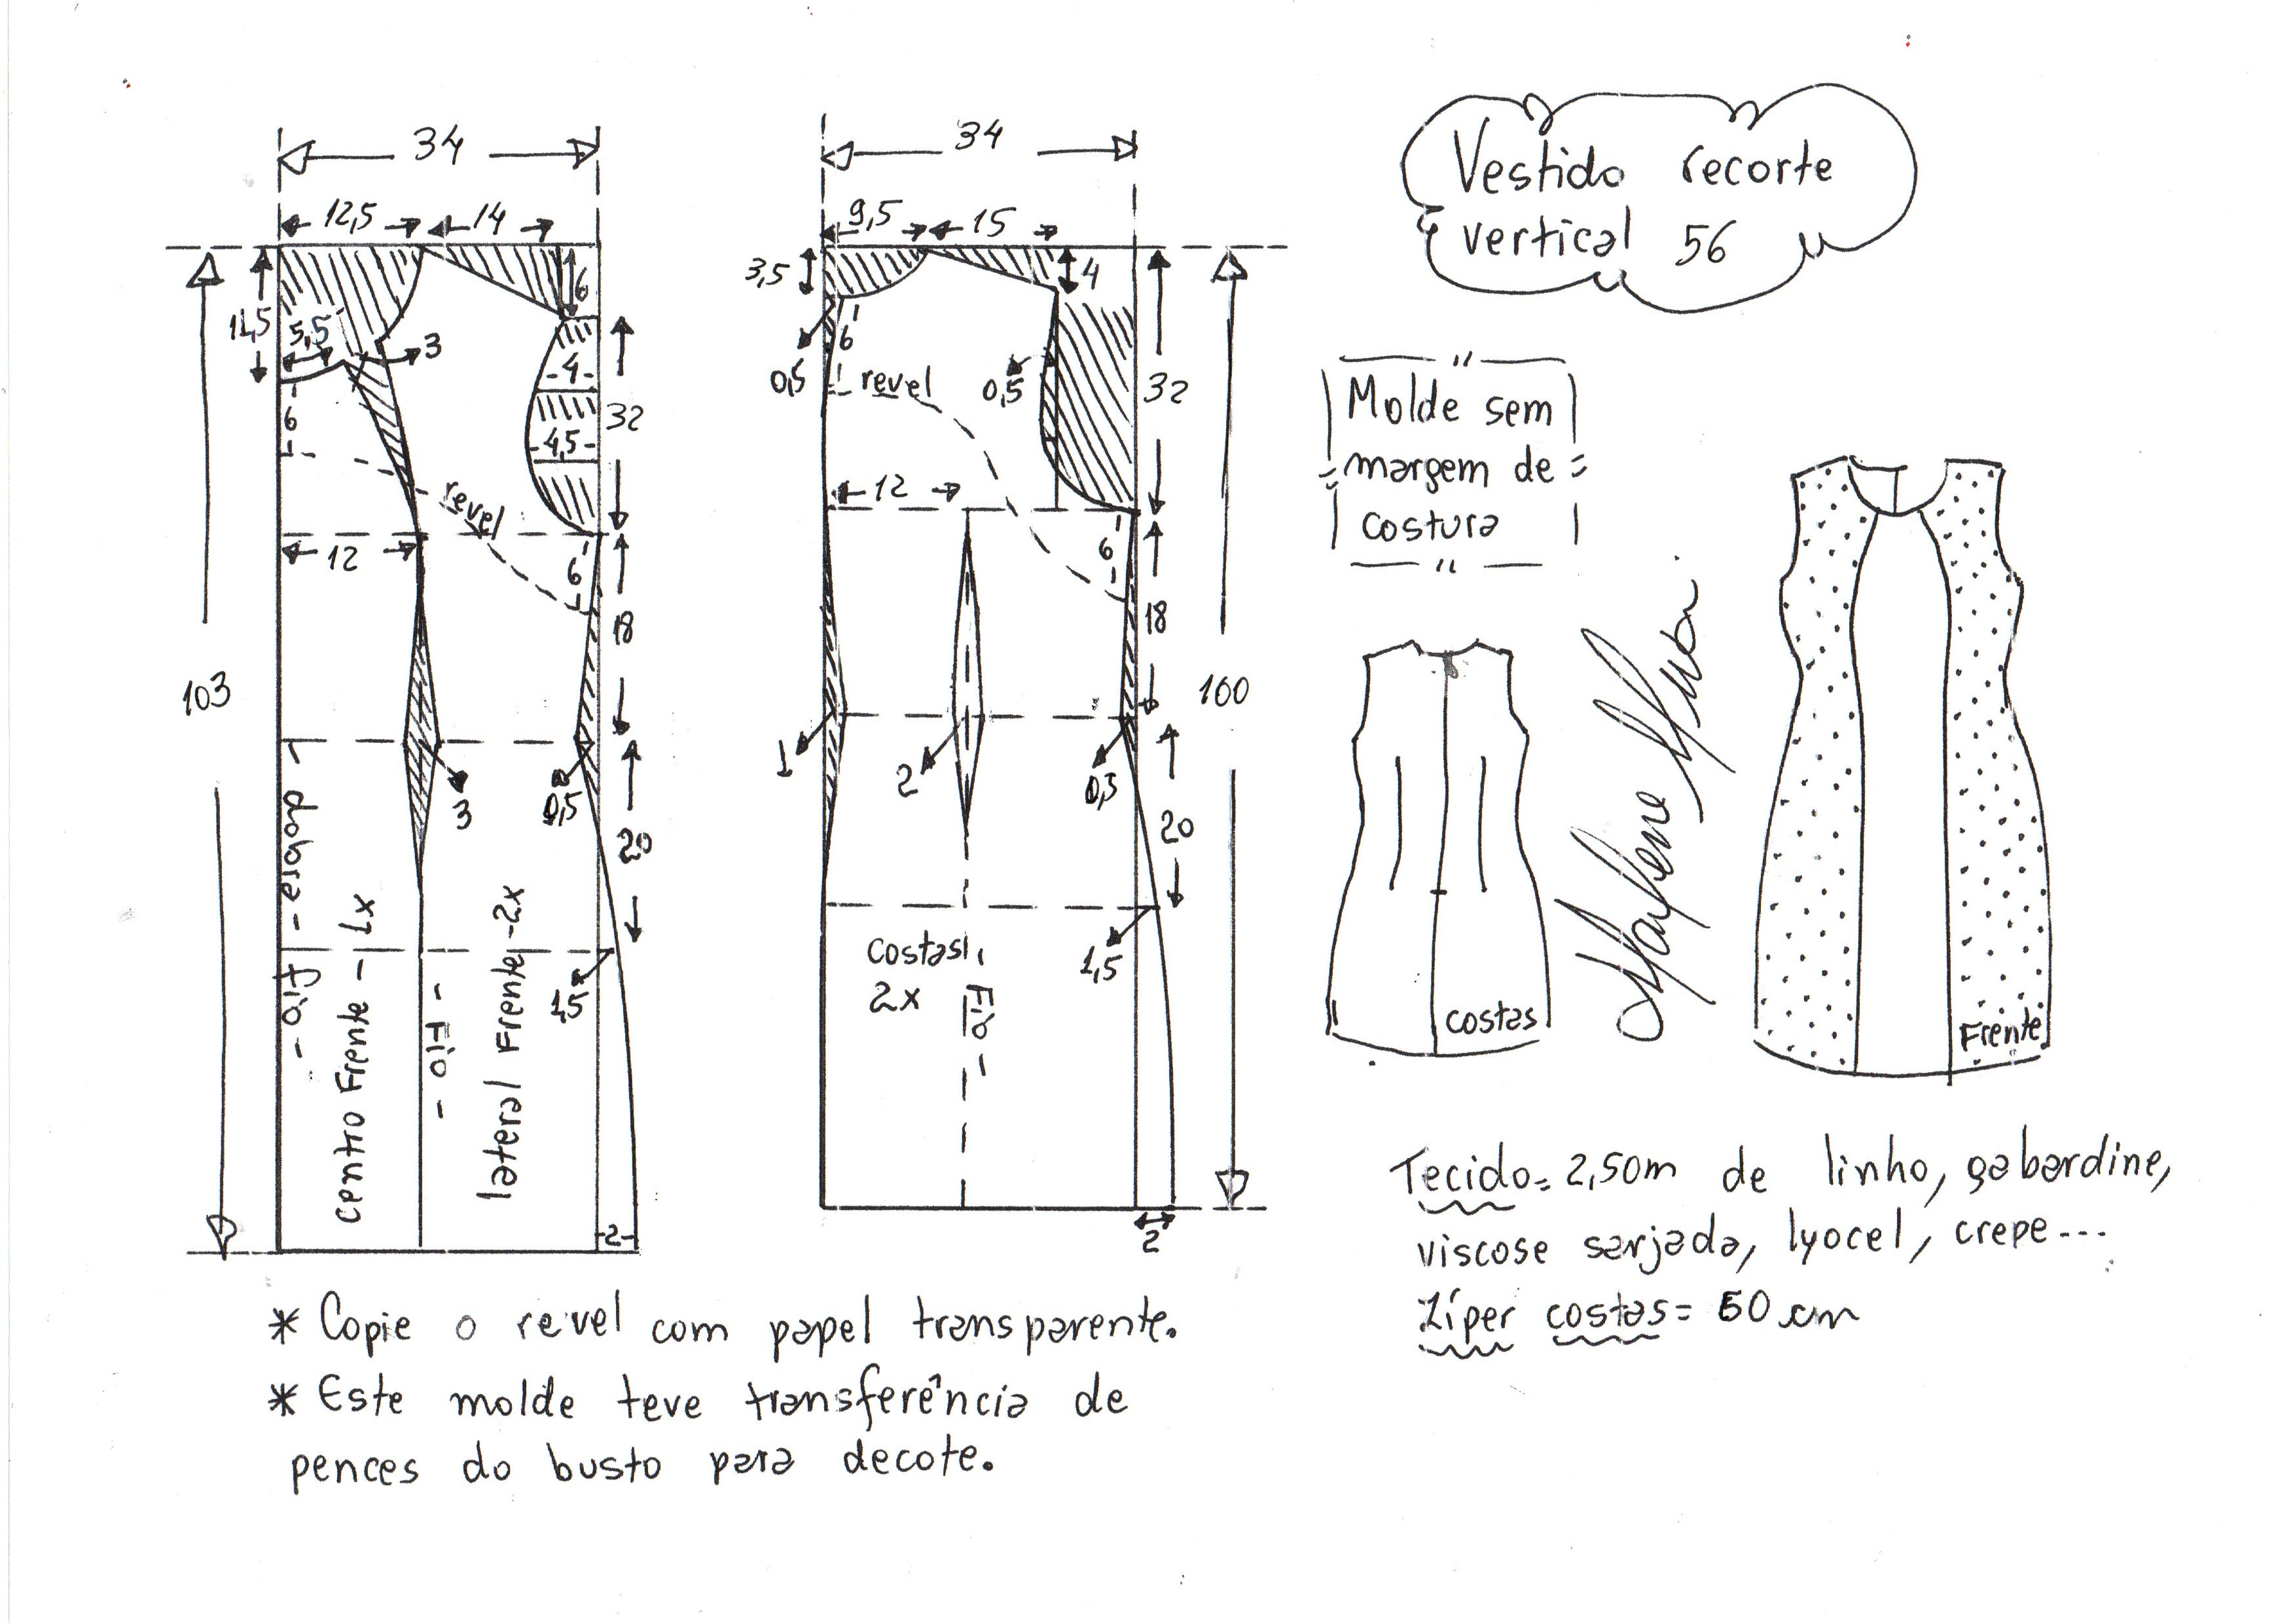 34
12,5
14
11,5
5,5
3
6
6
4
4,5
32
revel
12
6
18
103
3
0,5
20
1,5
dobra - fio -
centro Frente - 1x
- Fio -
lateral Frente - 2x
2
34
9,5
15
3,5
4
0,5
6
revel
0,5
32
12
6
18
100
1
2
0,5
20
1,5
costas
2x
Fio -
2
Vestido recorte
vertical 56
Molde sem
margem de
costura
costas
Frente
Marlene Mukai
Tecido = 2,50m de linho, gabardine,
viscose sarjada, lyocel, crepe...
Zíper costas = 60 cm
* Copie o revel com papel transparente.
* Este molde teve transferência de
pences do busto para decote.